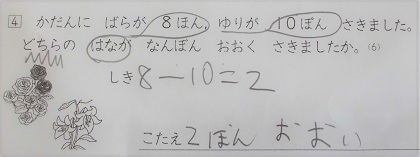 4 かだんに ばらが 8ほん, ゆりが 10ぽん さきました。
どちらの はなが なんぼん おおく さきましたか。(6)
しき 8-10=2
こたえ 2ほん おおい